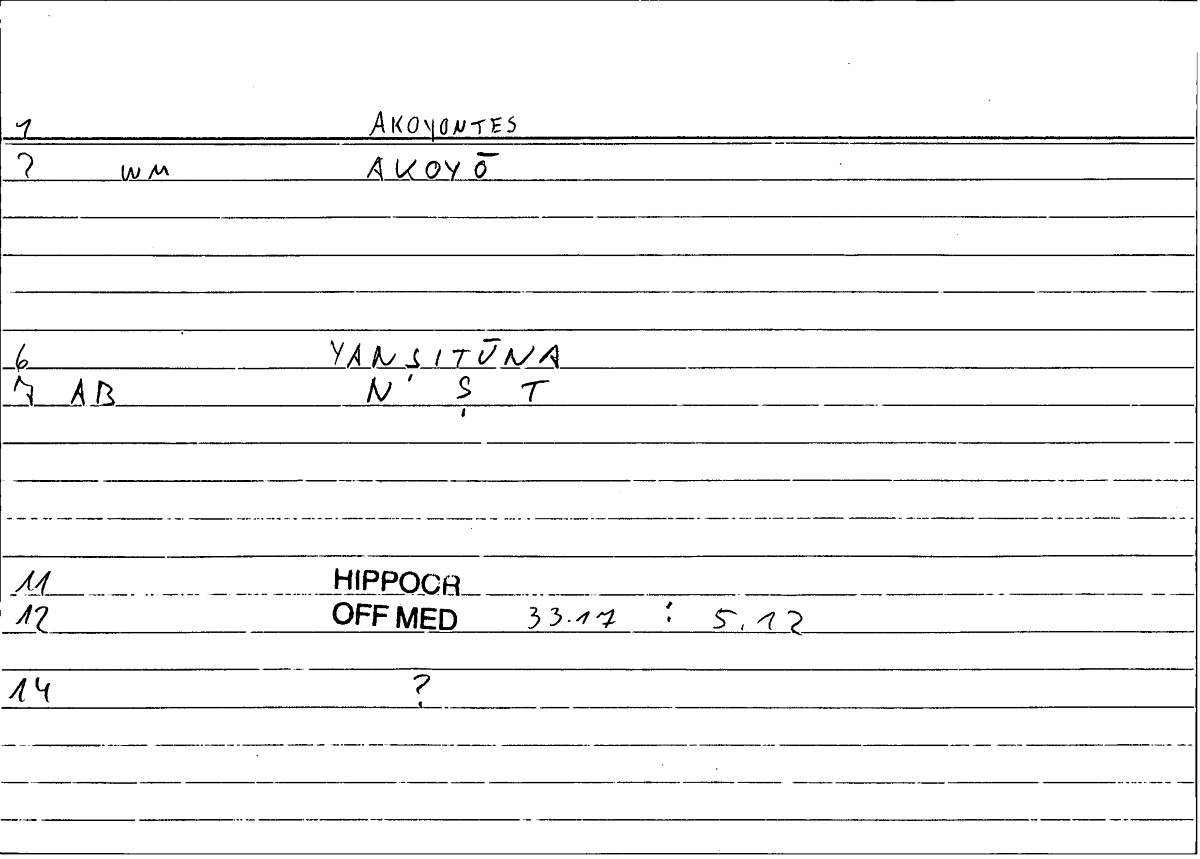 1 AKOYONTES
2 WM AKOYŌ
6 YANṢITŪNA
7 AB N Ṣ T
11 HIPPOCR
12 OFF MED 33.17 : 5.12
14 ?